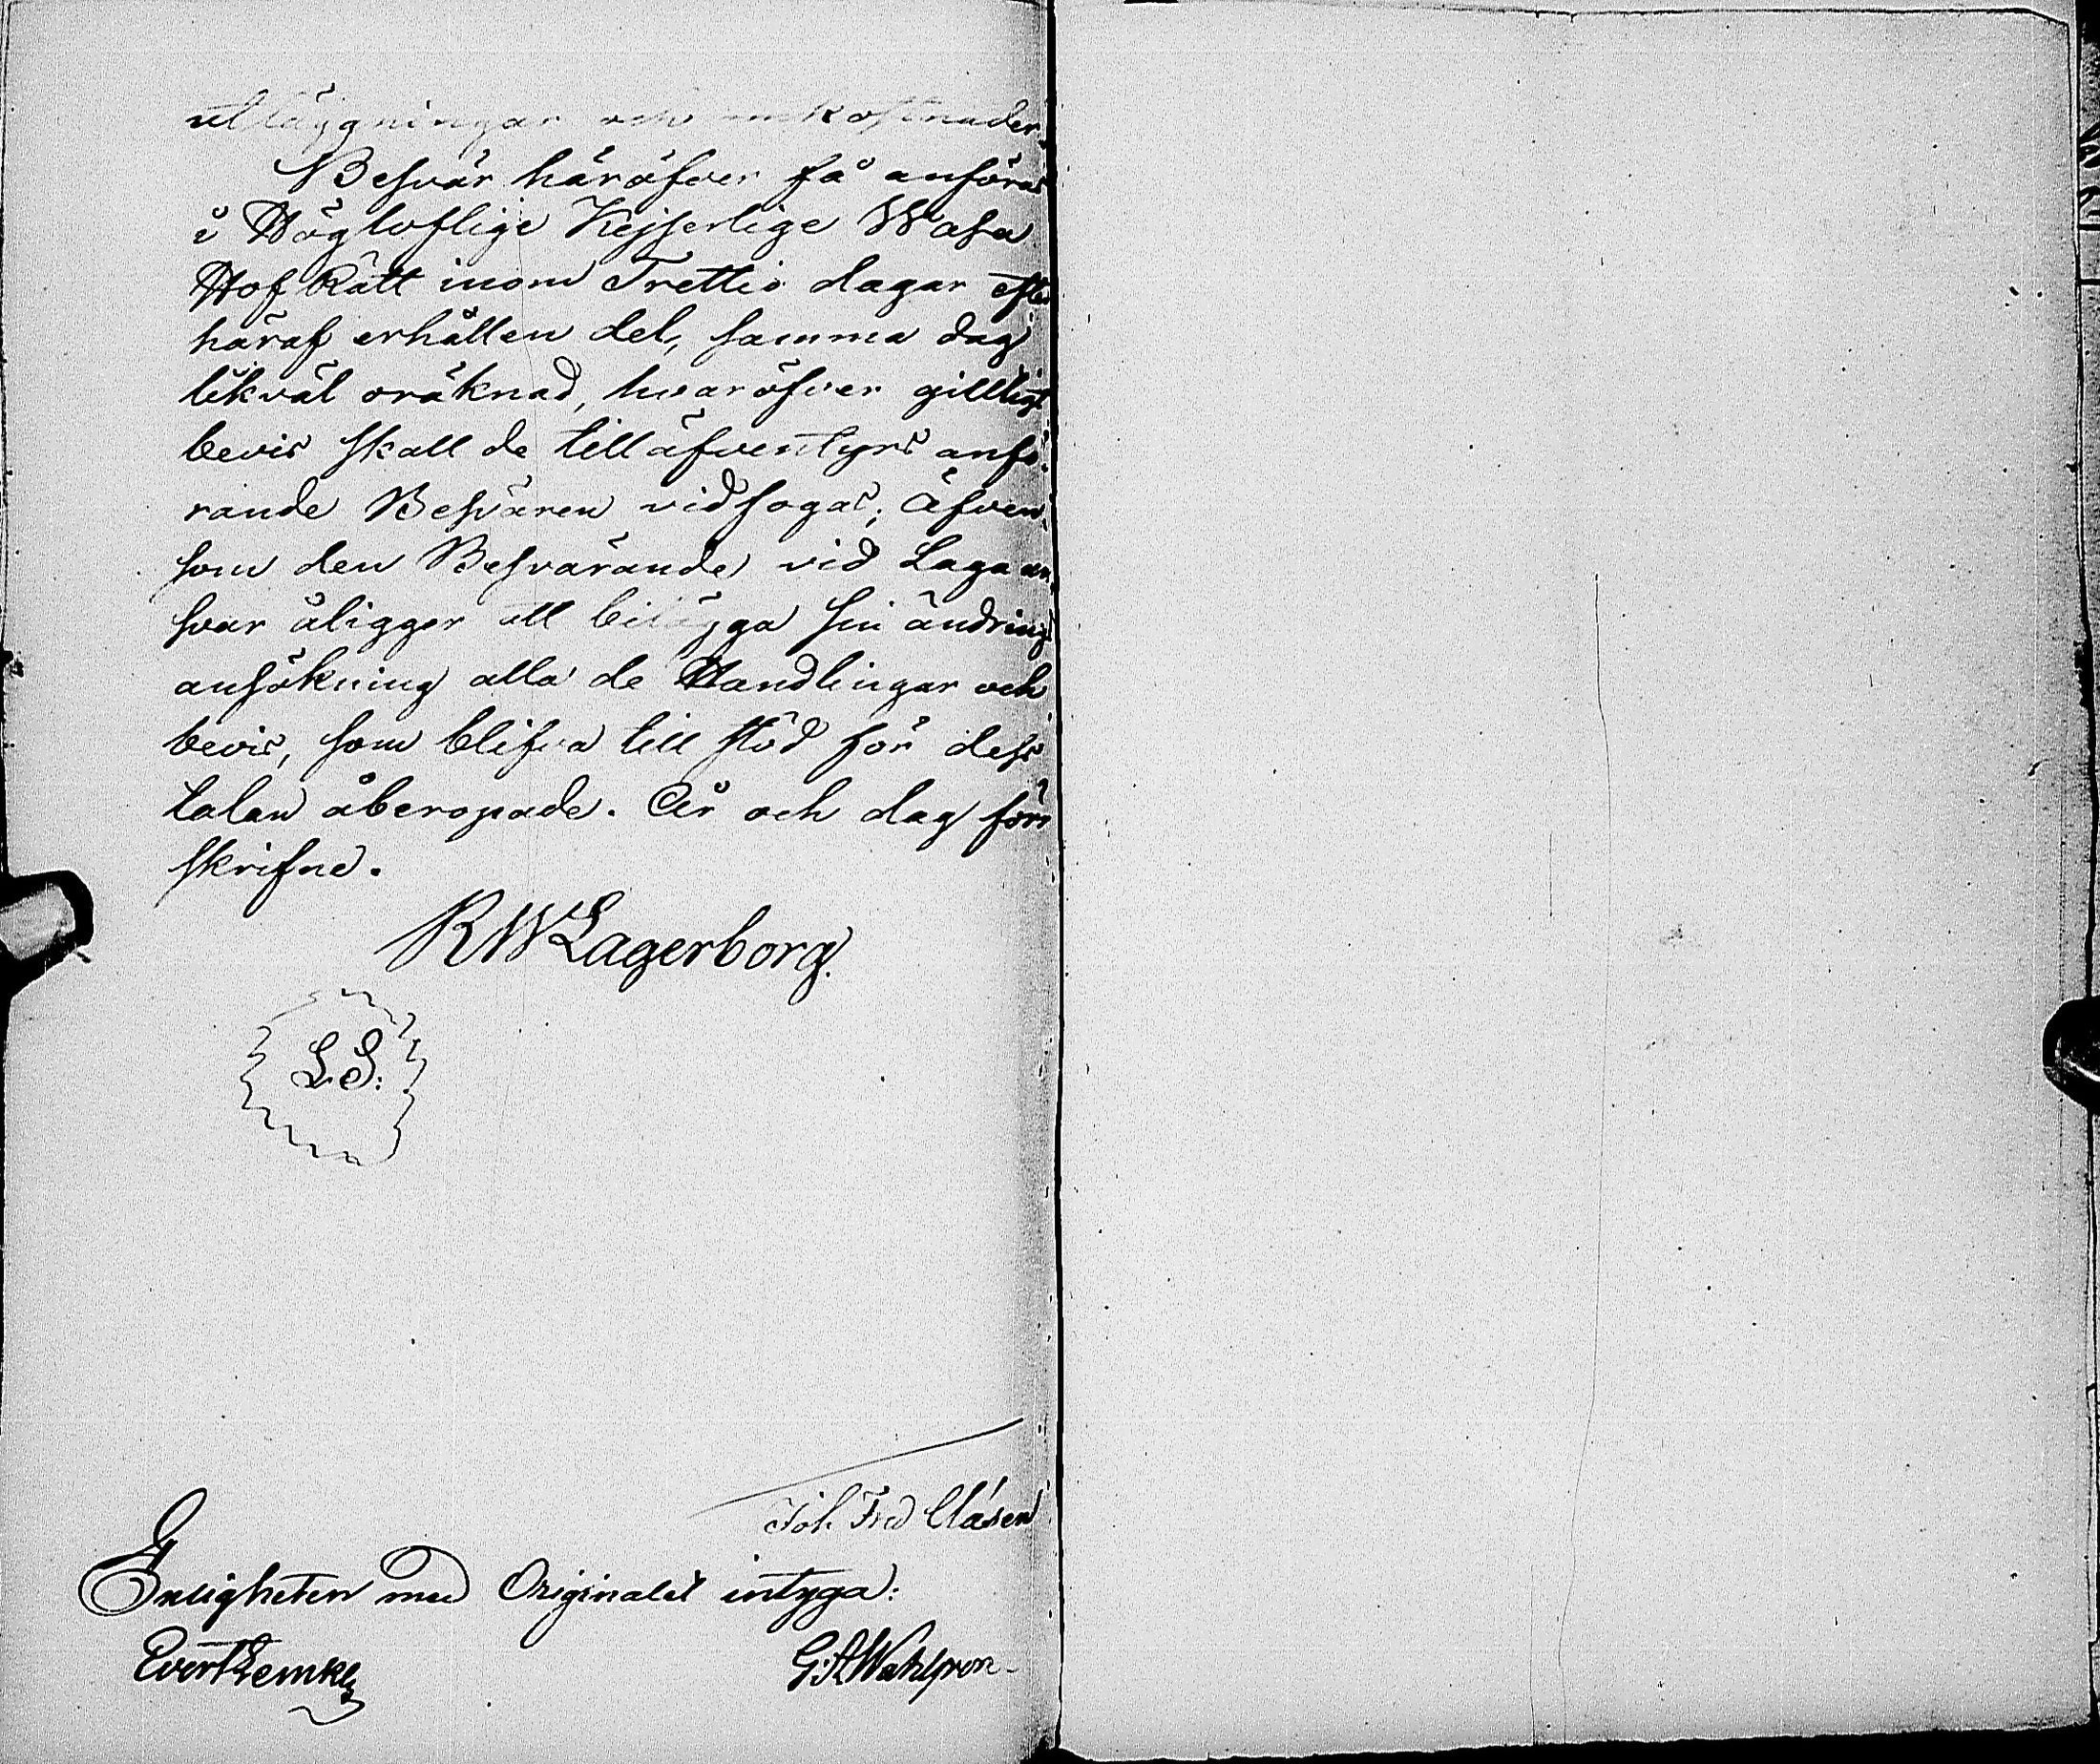 utläggningar och omkostnader.
Besvär häröfver få anföras
i Högloflige Kejserlige Wasa
Hof Rätt inom Trettio dagar efter
häraf erhållen del, samma dag
likväl oräknad, hvaröfver gilltigt
bevis skall de till äfventyrs anfö-
rande Besvären vidfogas; äfven-
som den Besvärande vid Laga an-
svar åligger att bilägga sin ändrings
ansökning alla de Handlingar och
bevis, som blifva till stöd för dess
talan åberopade. År och dag förr
skrifne.
RWLagerborg.
L.S.
Joh Fred Clásen
Enligheten med Originalet intyga:
Evert Lemke
G:A Wahlgren